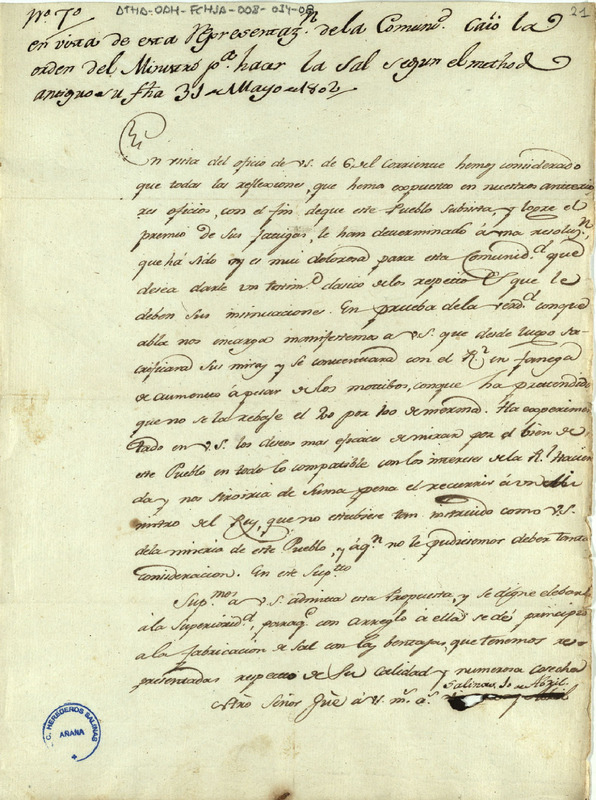 ATHA-DAH-FCHSA-008-014-08
21
Nº 7º
en vista de esta Representazn de la Comund. Caió la
orden del Ministro pa. hacer la Sal segun el methodo
antiguo su fha 31 de Mayo de 1802
En vista del oficio de vs. de 6 del Corriente hemos considerado
que todas las reflexiones, que hemos expuesto en nuestros anterio
res oficios, con el fin deque este Pueblo Subsista, y logre el
premio de sus fatigas, le han determinado á una resoluzn
que há sido y es mui dolorosa para esta Comunidd. que
desea darle un testimo. clasico de los respetos que le
deben sus insinuaciones. En prueba dela verdd. conque
abla nos encarga manifestemos a v.s. que desde luego sa-
crificará sus miras y se contentará con el Rl. en fanega
de aumento á pesar de los motibos, conque ha pretendido
que no se la rebaje el 20 por 100 de merma. Ha experimen
tado en v.s. los deseos mas eficaces de mirar por el bien de
este Pueblo en todo lo compatible con los intereses de la Rl. Hacien
da y nos serviria de suma pena el recurrir á un Mi
nistro del Rey, que no estubiese tan instruido como v.s.
dela miseria de este Pueblo, y áqn. no le pudiesemos deber tanta
consideracion. En este supto
Supmos. a v.s. admita esta Propuesta, y se digne elebarla
á la Superioridd. paraqe. con arreglo á ella se dé principio
á la fabricacion de sal con las bentajas, que tenemos re-
presentadas respecto de su calidad y numerosa cosecha
Ntro Señor gue á v. ms. as. Salinas 10 de Abril
C. HEREDEROS SALINAS
AÑANA